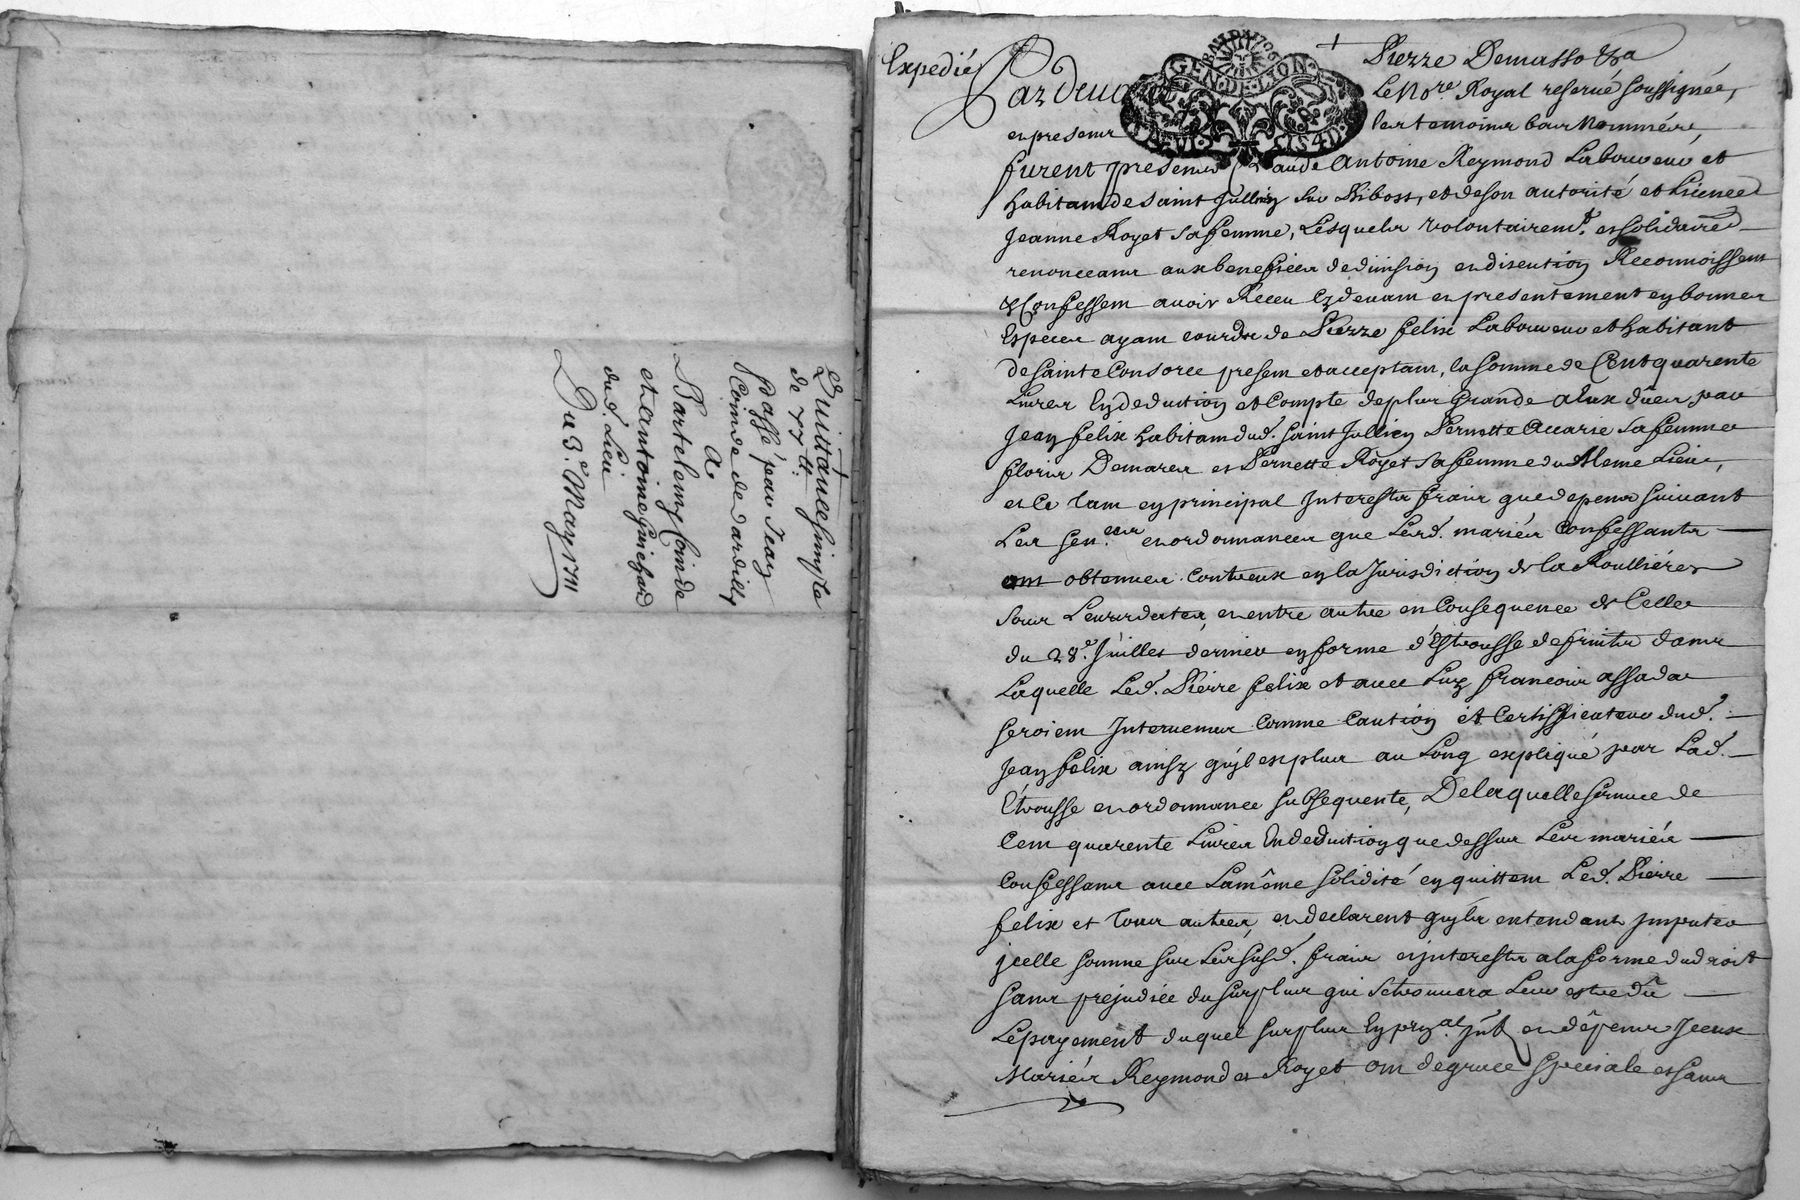 Quittance simple
de 77 lt.
Passé par Jean
Coinde de dardilly
A
Bartelemy Coinde
et antoine Guichard
dud. Lieu
Du 3e. May 1711
Expedié
GEN. DE. LYON.
Pierre Demasso &a
Pardevant Le No.re Royal reservé soussignée,
en presence des temoins bas Nommées
furent presens Claude Antoine Reymond Laboureur et
habitant de saint Jullien sur Bibost, et de son autorité et Licence
Jeanne Royet sa femme, Lesquels volontairemt. et solidaire
renonceans aux benefices de division en discution Reconnoissent
& Confessent avoir Receu Cy devant et presentement en bonnes
Especes ayant cours de Pierre felix Laboureur et habitant
de sainte Consorce present et acceptant, la somme de Cent quarente
Livres En deduction et Compte de plus Grande a Eux düe par
Jean felix habitant dud. saint Jullien Pernette Accarie sa femme
floris Demares et Pernette Royet sa femme du Meme Lieu,
et Ce tant en principal Interests frais que depens suivant
Les sen.ces et ordonnances que Lesd. mariés Confessants
ont obtenues Contreux en la Jurisdiction de la Roullière
sous Leurs dates, et entre autre en Consequence de Celle
du 28e. Juillet dernier en forme d'Estrousse de fruits dans
Laquelle Led. Pierre felix et avec Luy francois assada
seroient Intervenus Comme Caution et Certifficateur dud.
Jean felix ainsy qu'il est plus au Long expliqué par Lad.
Etrousse et ordonnance subsequente, De laquelle somme de
Cent quarente Livres En deduction que dessus Les mariés
Confessans avec La même solidité en quittent Led. Pierre
felix et tous autres, et declarent qu'ils entendent imputer
jcelle somme sur Les susd. frais et interests a la forme du droit
sans prejudice du surplus qui se trouvera Leur estre dû
Le payement duquel surplus En pr.al Int. et dépens Iceux
Mariés Reymond et Royet ont de grace speciale et sans